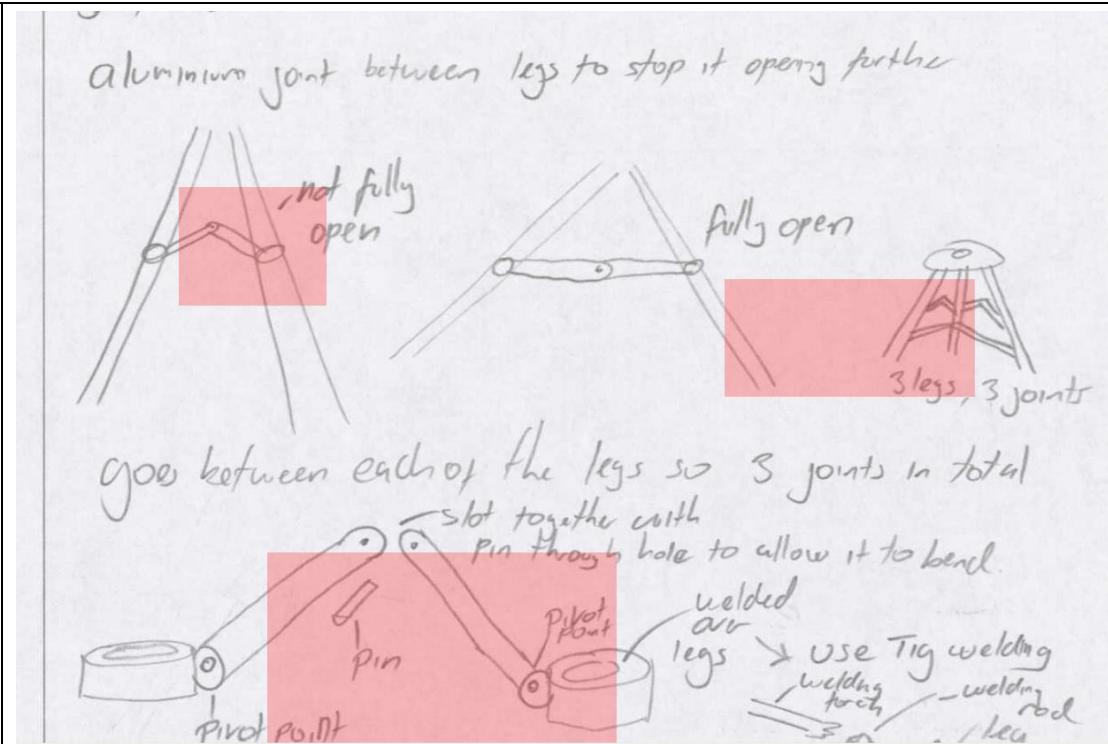 aluminium joint between legs to stop it opening further
not fully
open
fully open
3 legs, 3 joints
goes between each of the legs so 3 joints in total
slot together with
pin through hole to allow it to bend
pin
pivot
point
welded
over
legs
use Tig welding
welding
torch
welding
rod
leg
pivot point